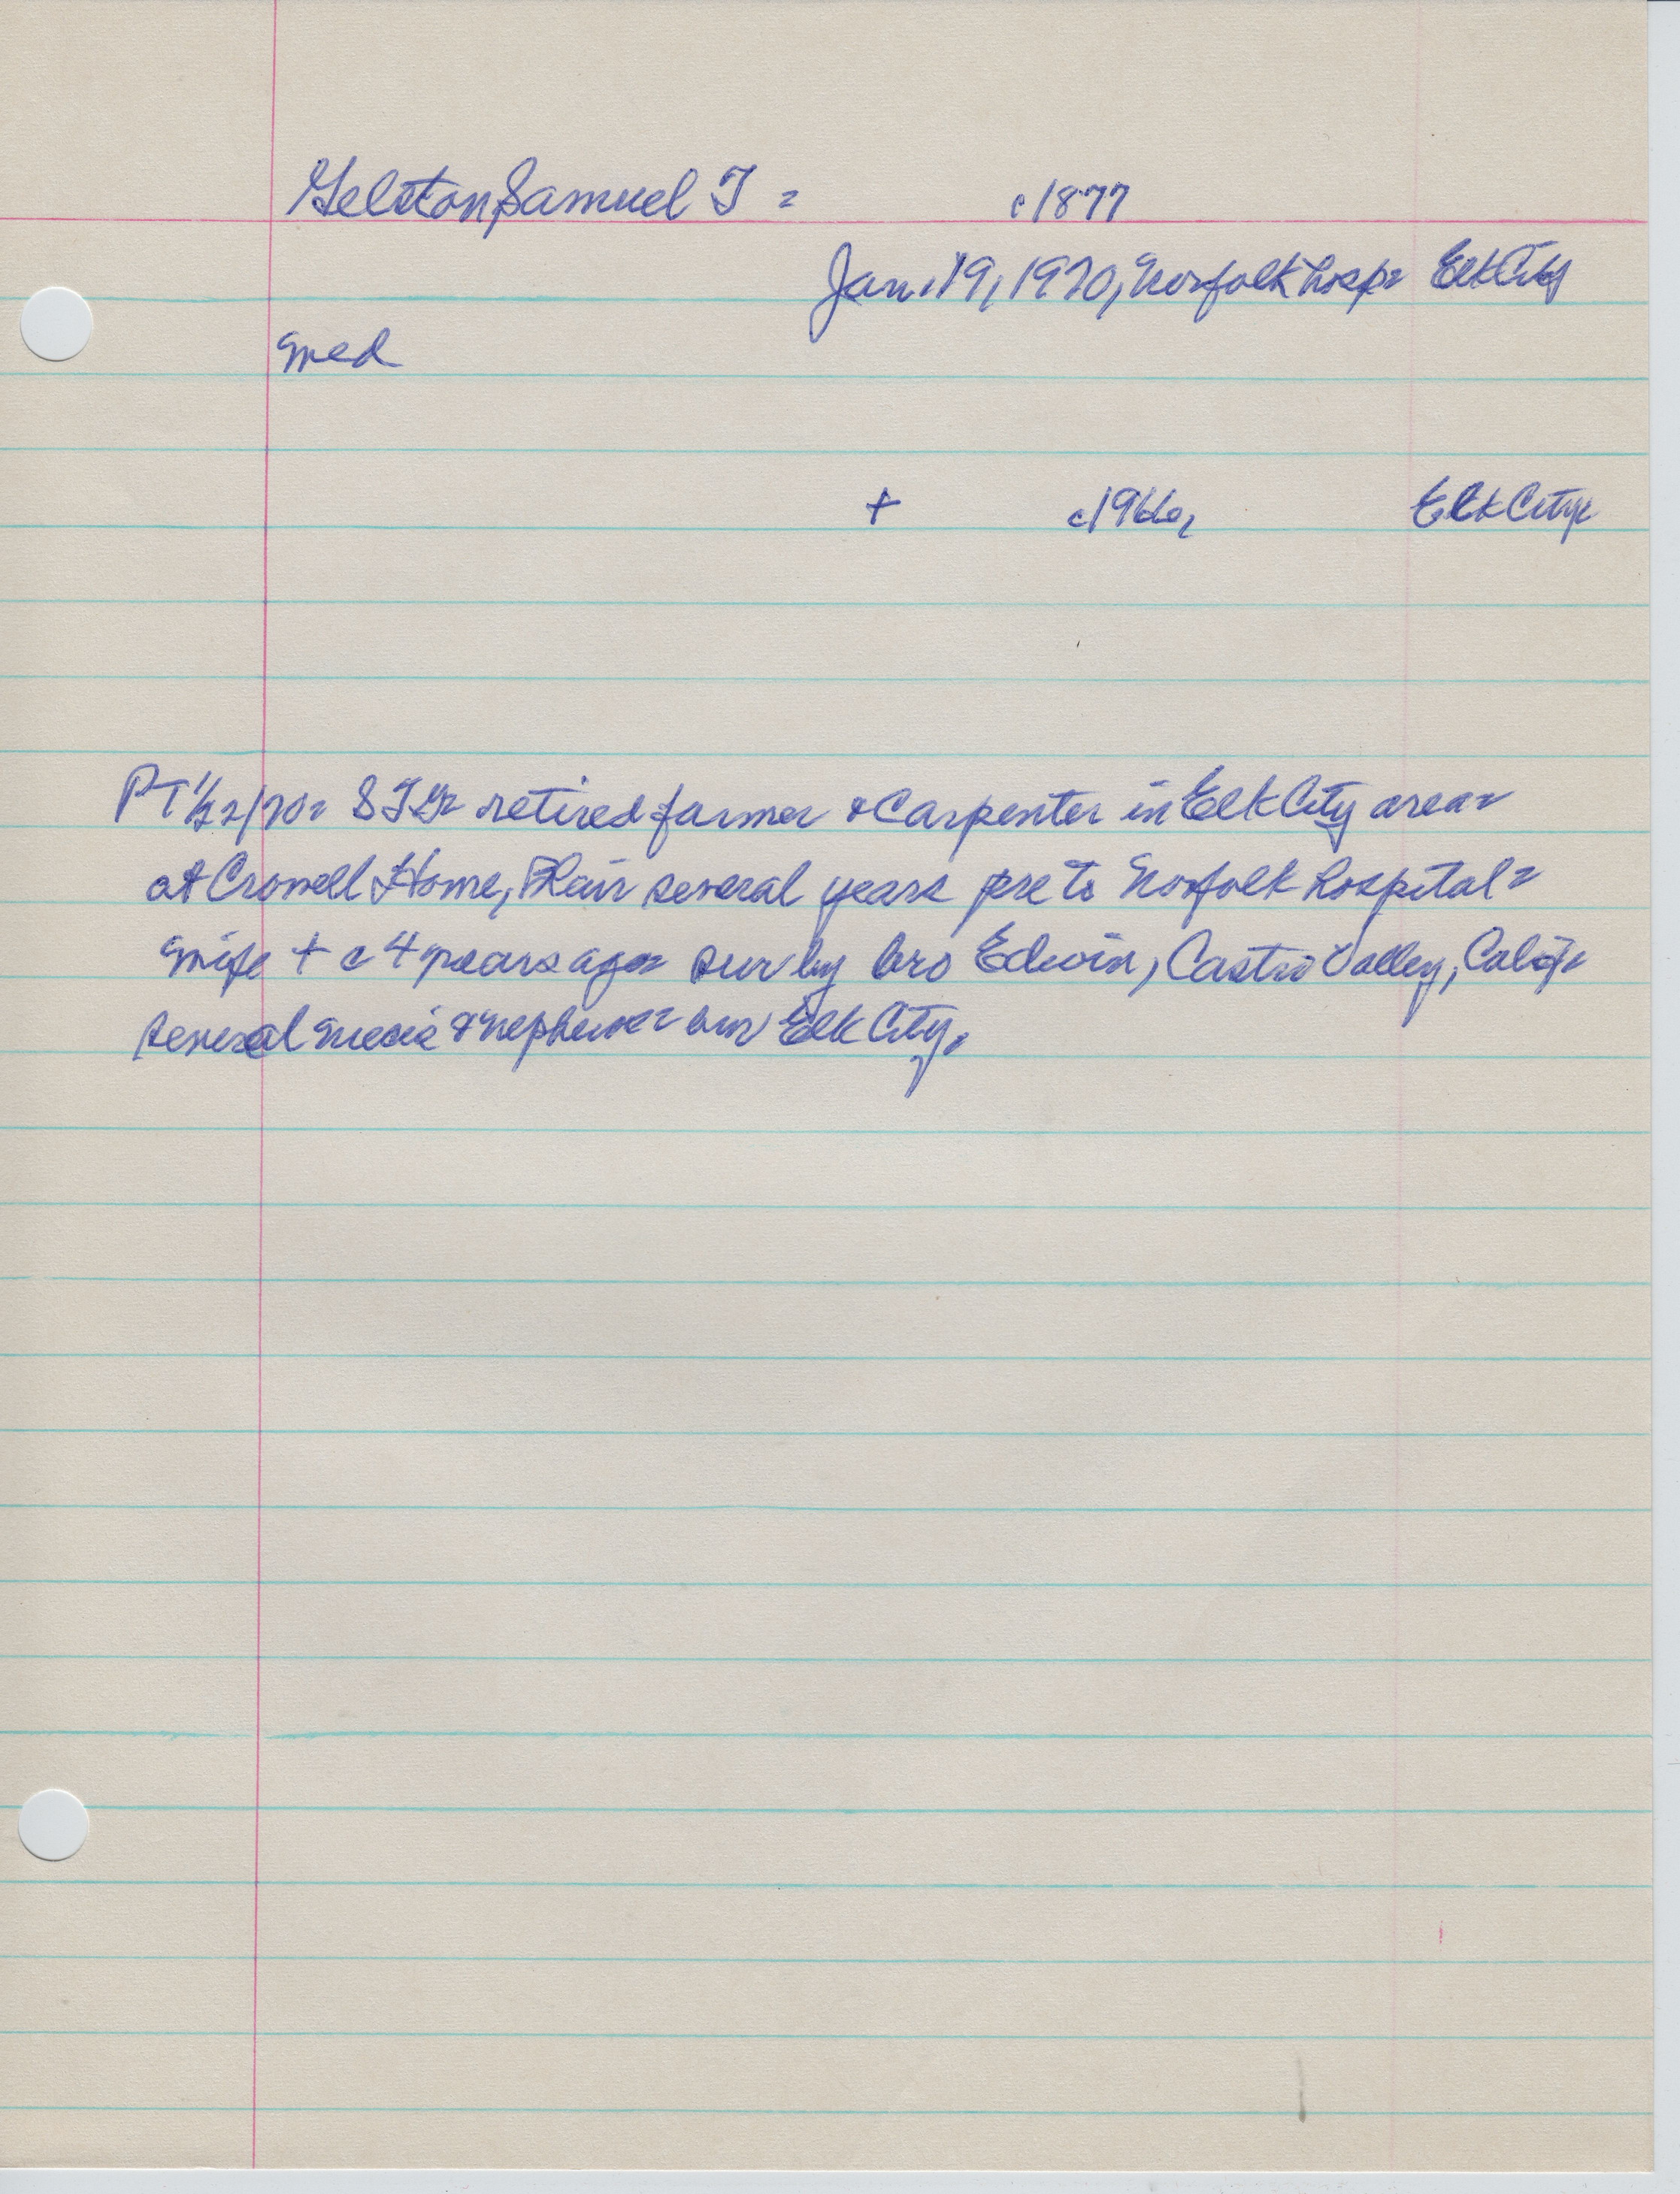 Gelston, Samuel T = c1877
Jan. 19, 1970, Norfolk hosp= Elk City
med
+ c1966, Elk City=
PT 1/22/70= STG= retired farmer & Carpenter in Elk City area=
at Crowell Home, Blair several years pre to Norfolk hospital=
wife + c 4 years ago= sur by bro Edwin, Castro Valley, Calif=
several niecis & nephews= bur Elk City.